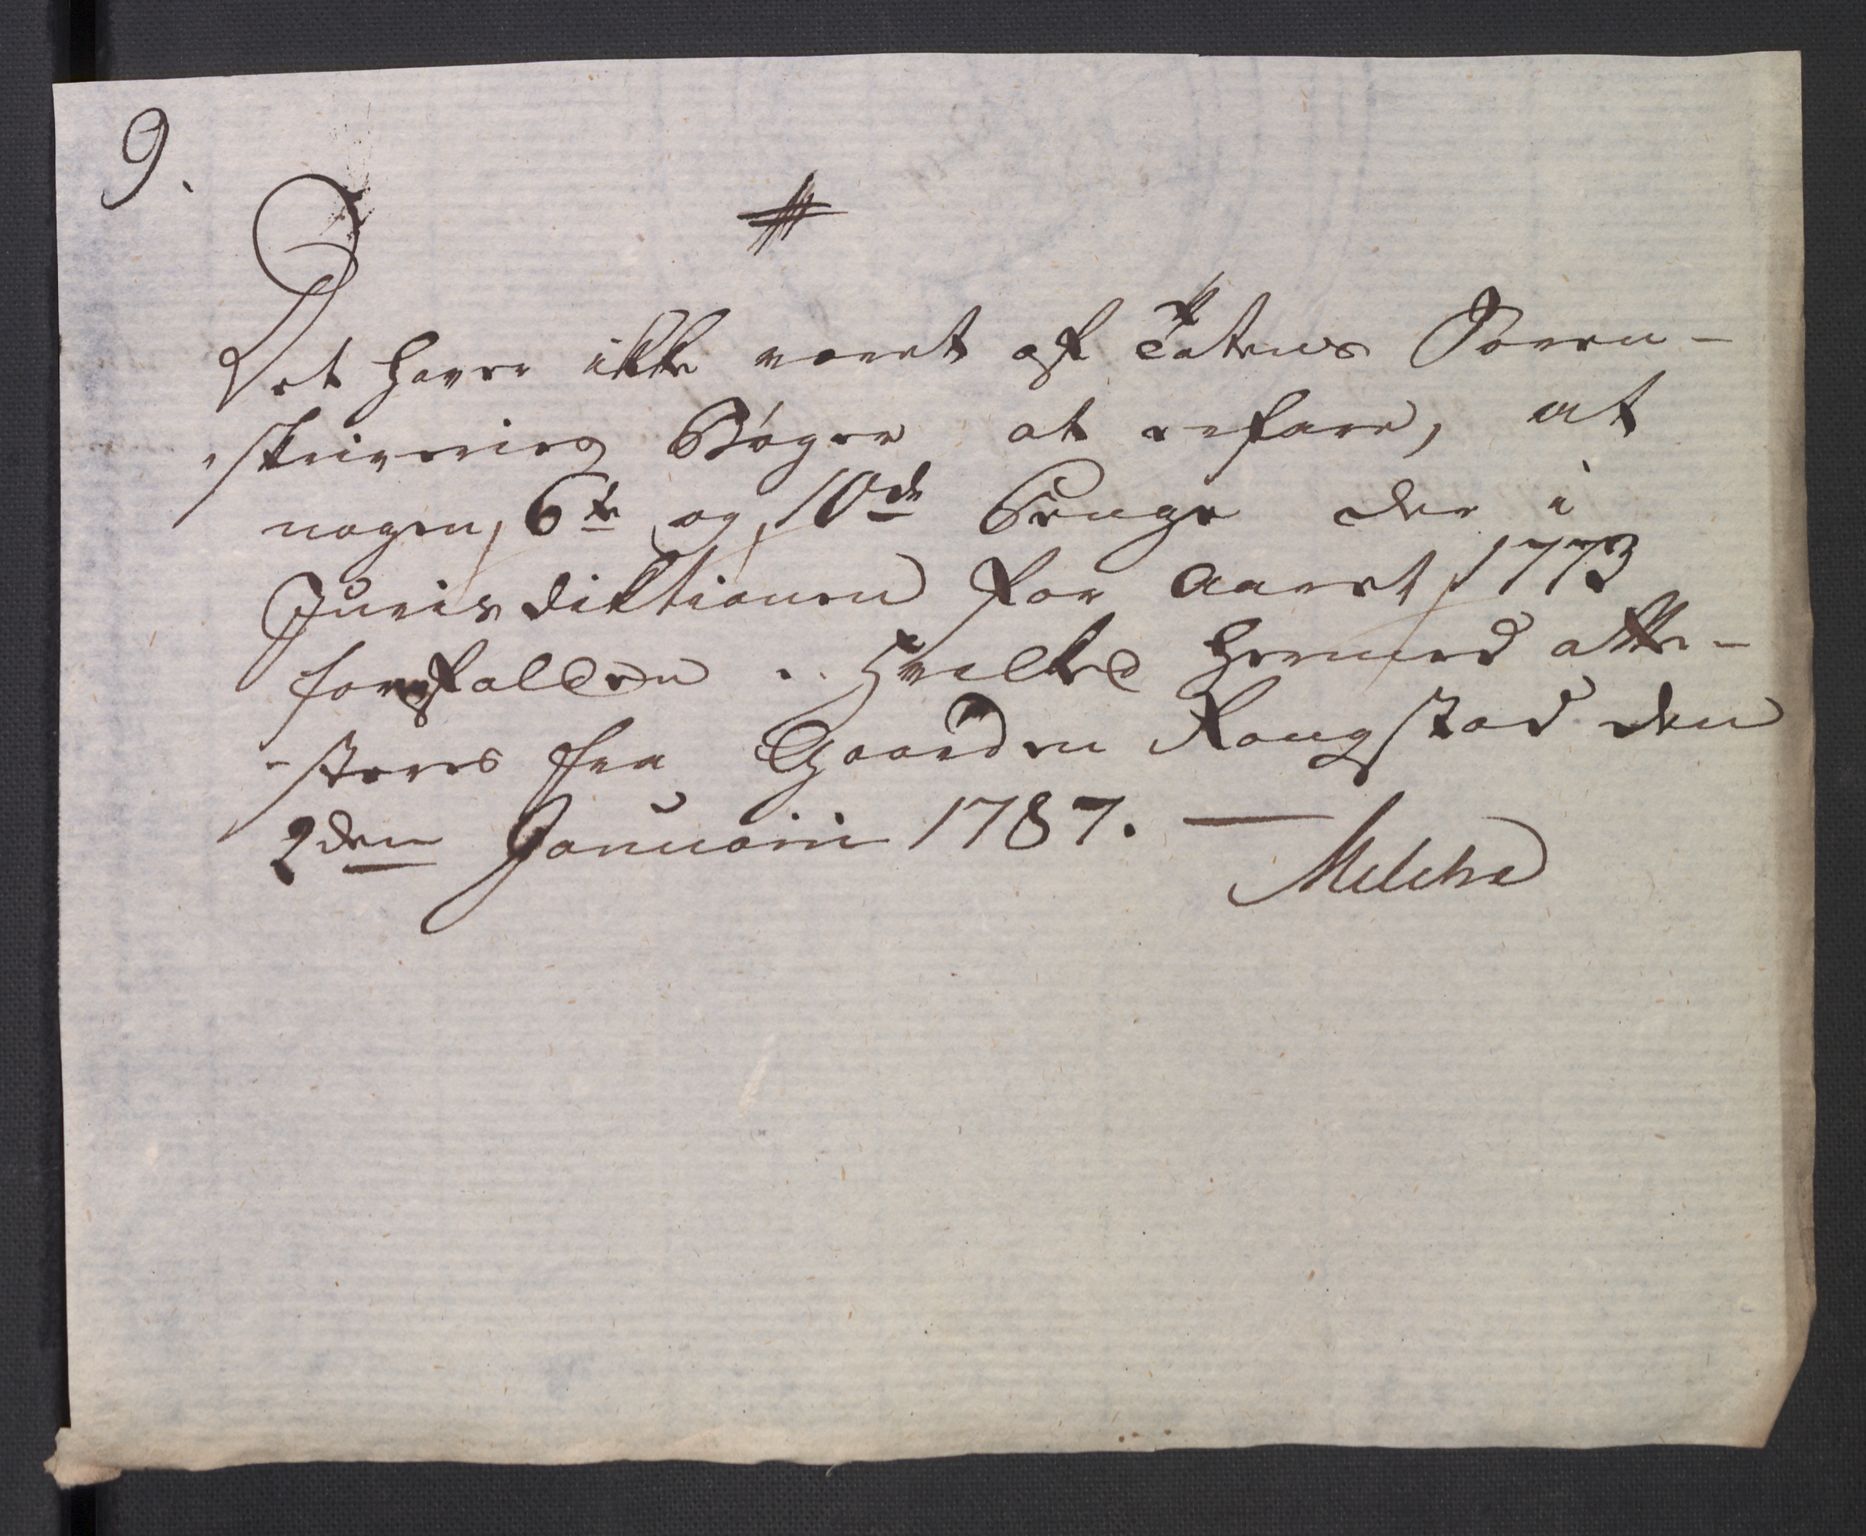 9.
Det haver ikke været af Totens Soren-
skriveries Bøger at erfare, at
nogen 6te og 10de Penge der i
Jurisdiktionen for Aaret 1773
forefalden. Hvilket hermed atte-
steres fra Gaarden Rongstad den
2den Januarii 1787. —